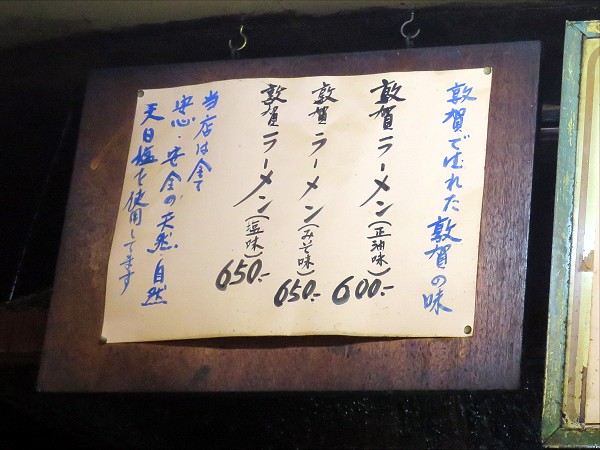 敦賀で生れた敦賀の味
敦賀ラーメン(正油味)600.-
敦賀ラーメン(みそ味)650.-
敦賀ラーメン(塩味)650.-
当店は全て
安心・安全の天然・自然
天日塩を使用してます